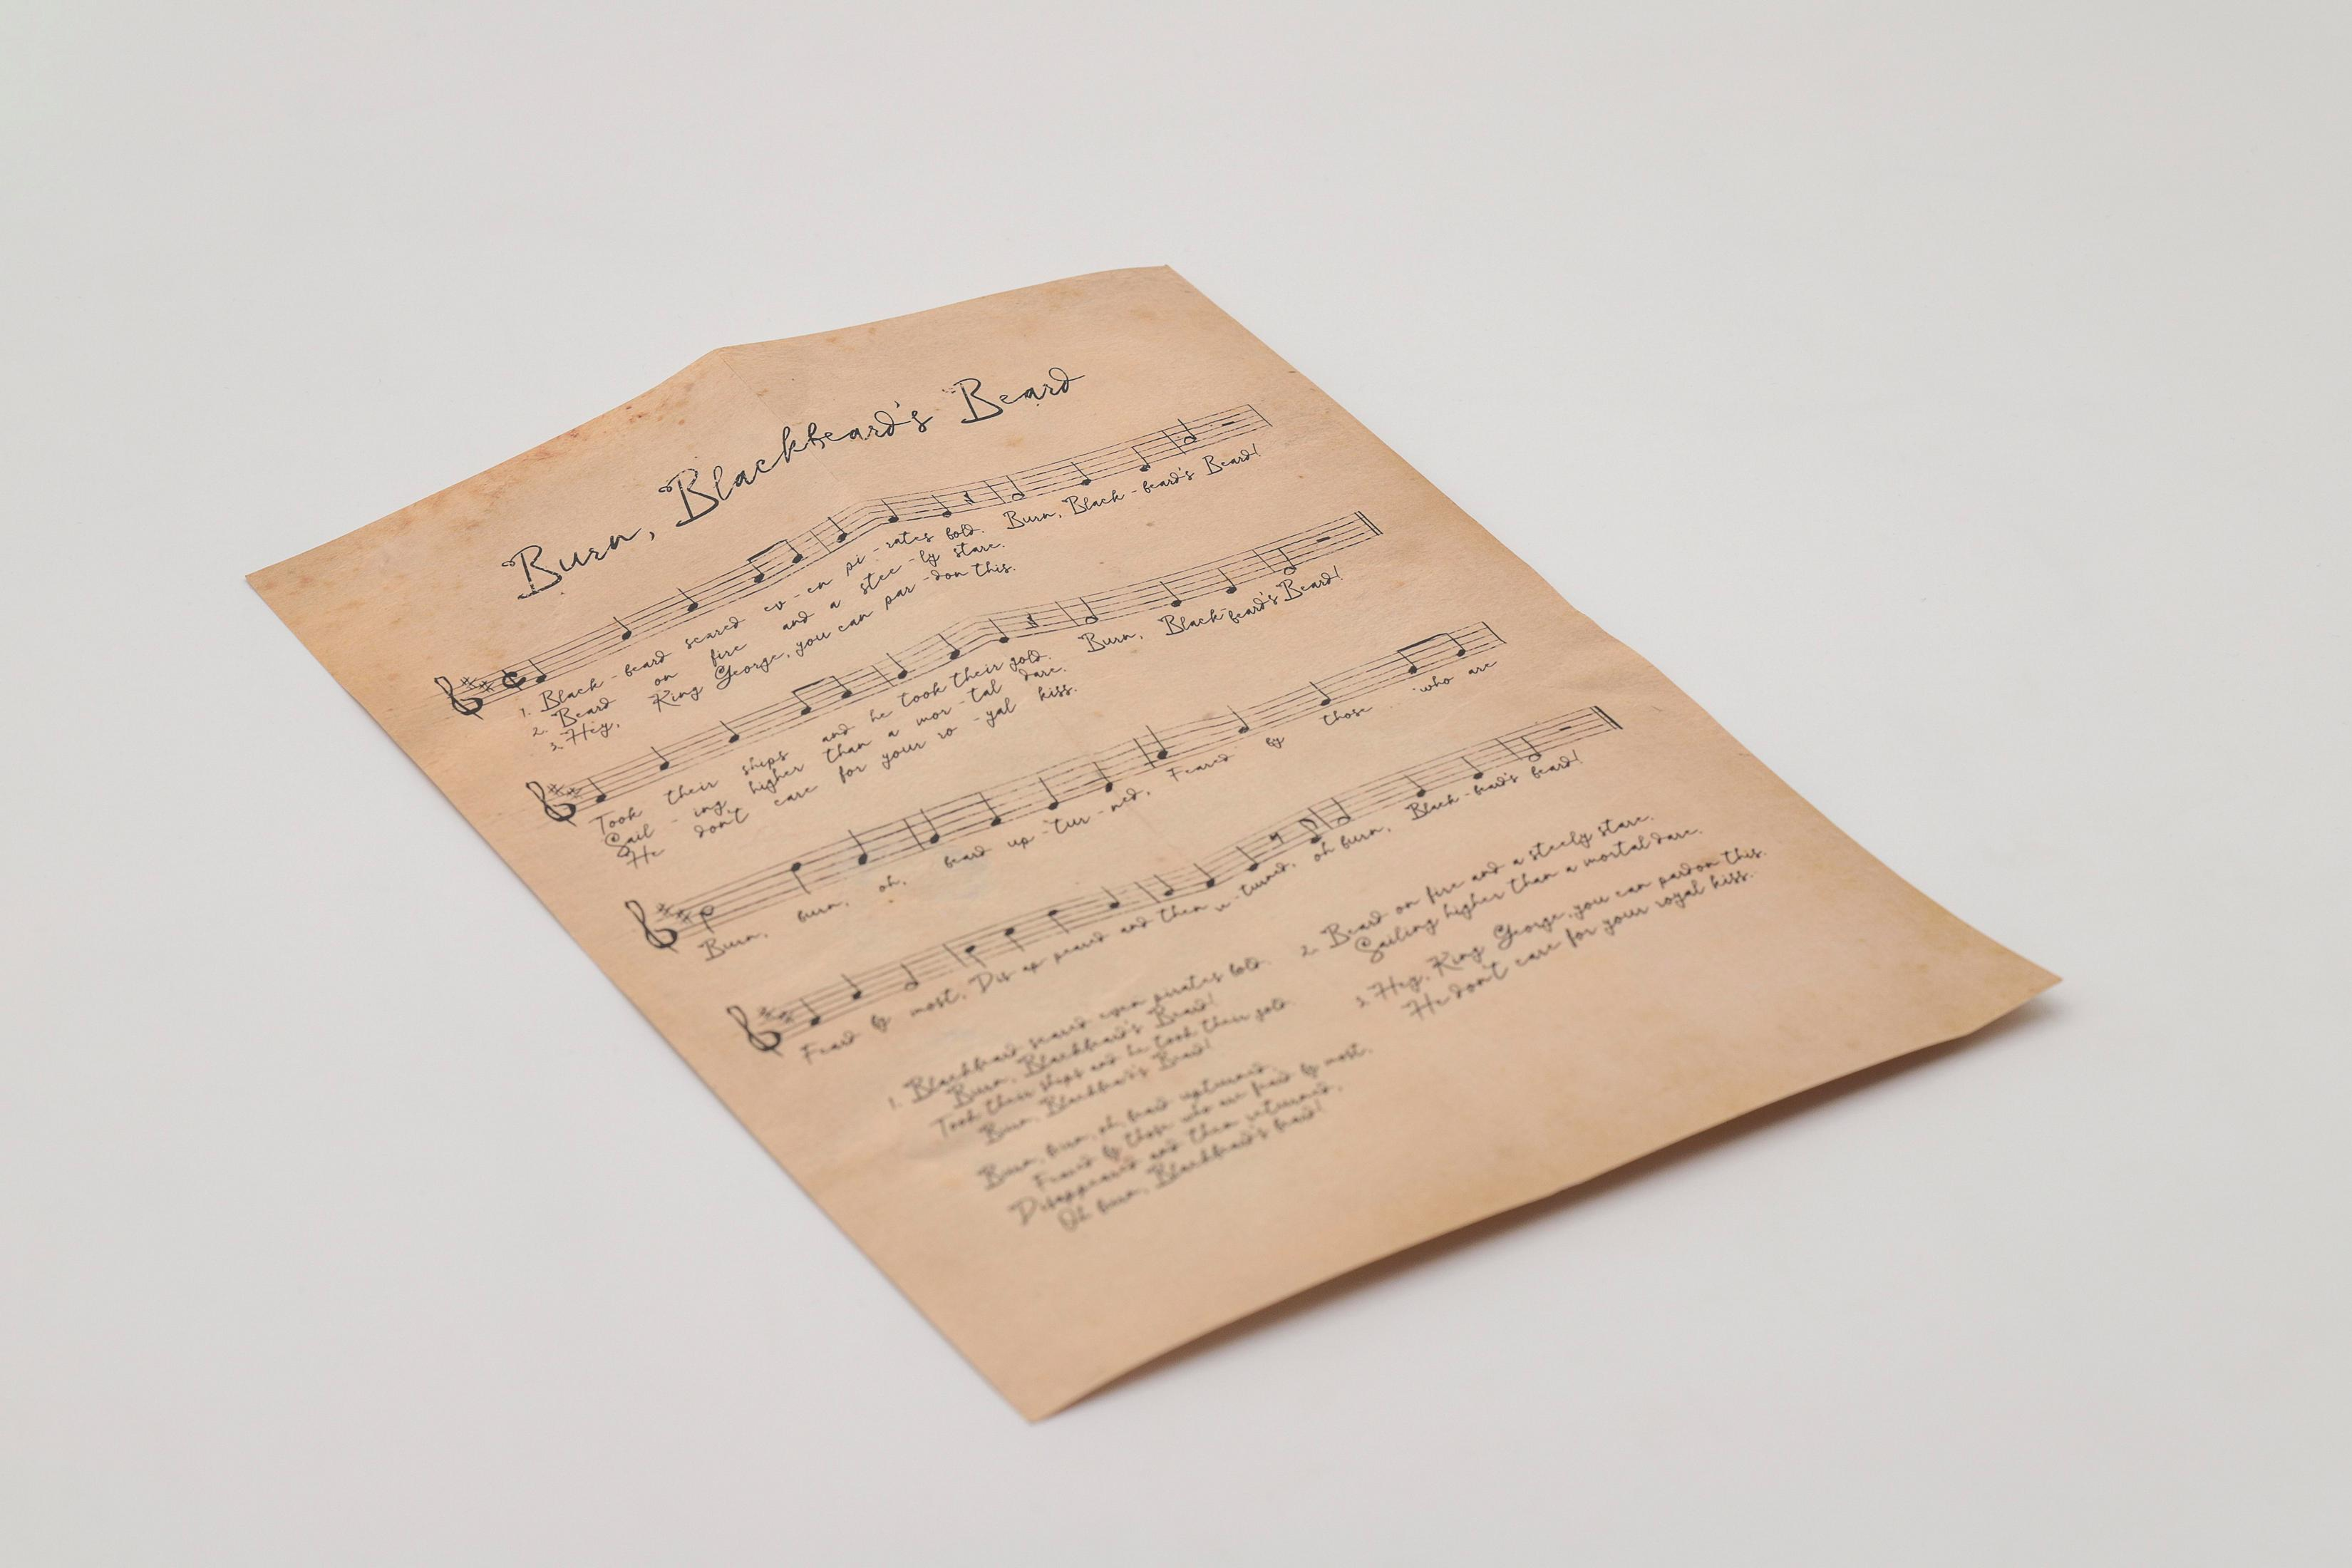 Burn, Blackbeard's Beard
1. Black - beard scared ev - en pi - rates bold. Burn, Black - beard's Beard!
2. Beard on fire and a stee - ly stare.
3. Hey, King George, you can par - don this.
Took their ships and he took their gold. Burn, Black - beard's Beard!
Sail - ing, higher than a mor - tal dare.
He don't care for your ro - yal kiss.
Burn, burn, oh, beard up - tur - ned, Feared by those who are
Feard by most, Dis ap peared and then re - turned, oh burn, Black - beard's beard!
1. Blackbeard scared even pirates bold.
Burn, Blackbeard's Beard!
Took their ships and he took their gold.
Burn, Blackbeard's Beard!
Burn, burn, oh, beard upturned,
Feared by those who are feard by most.
Disappeared and then returned,
Oh burn, Blackbeard's beard!
2. Beard on fire and a steely stare.
Sailing higher than a mortal dare.
3. Hey, King George, you can pardon this.
He don't care for your royal kiss.